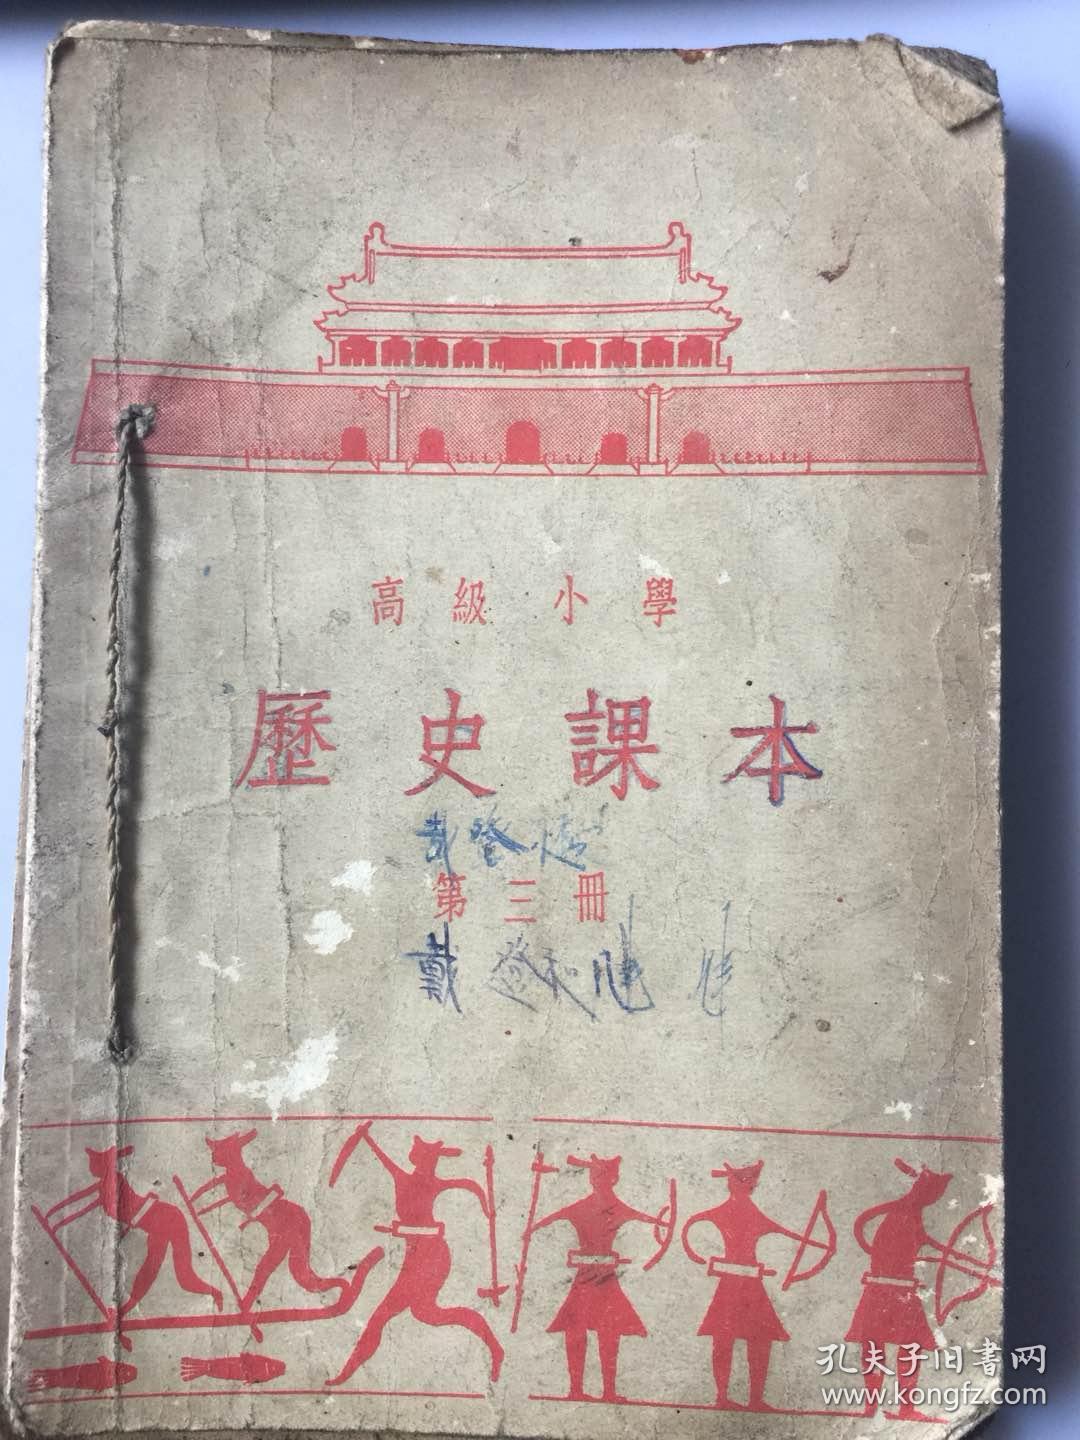 高級小學
歷史課本
第三冊
戴
孔夫子旧書网
www.kongfz.com